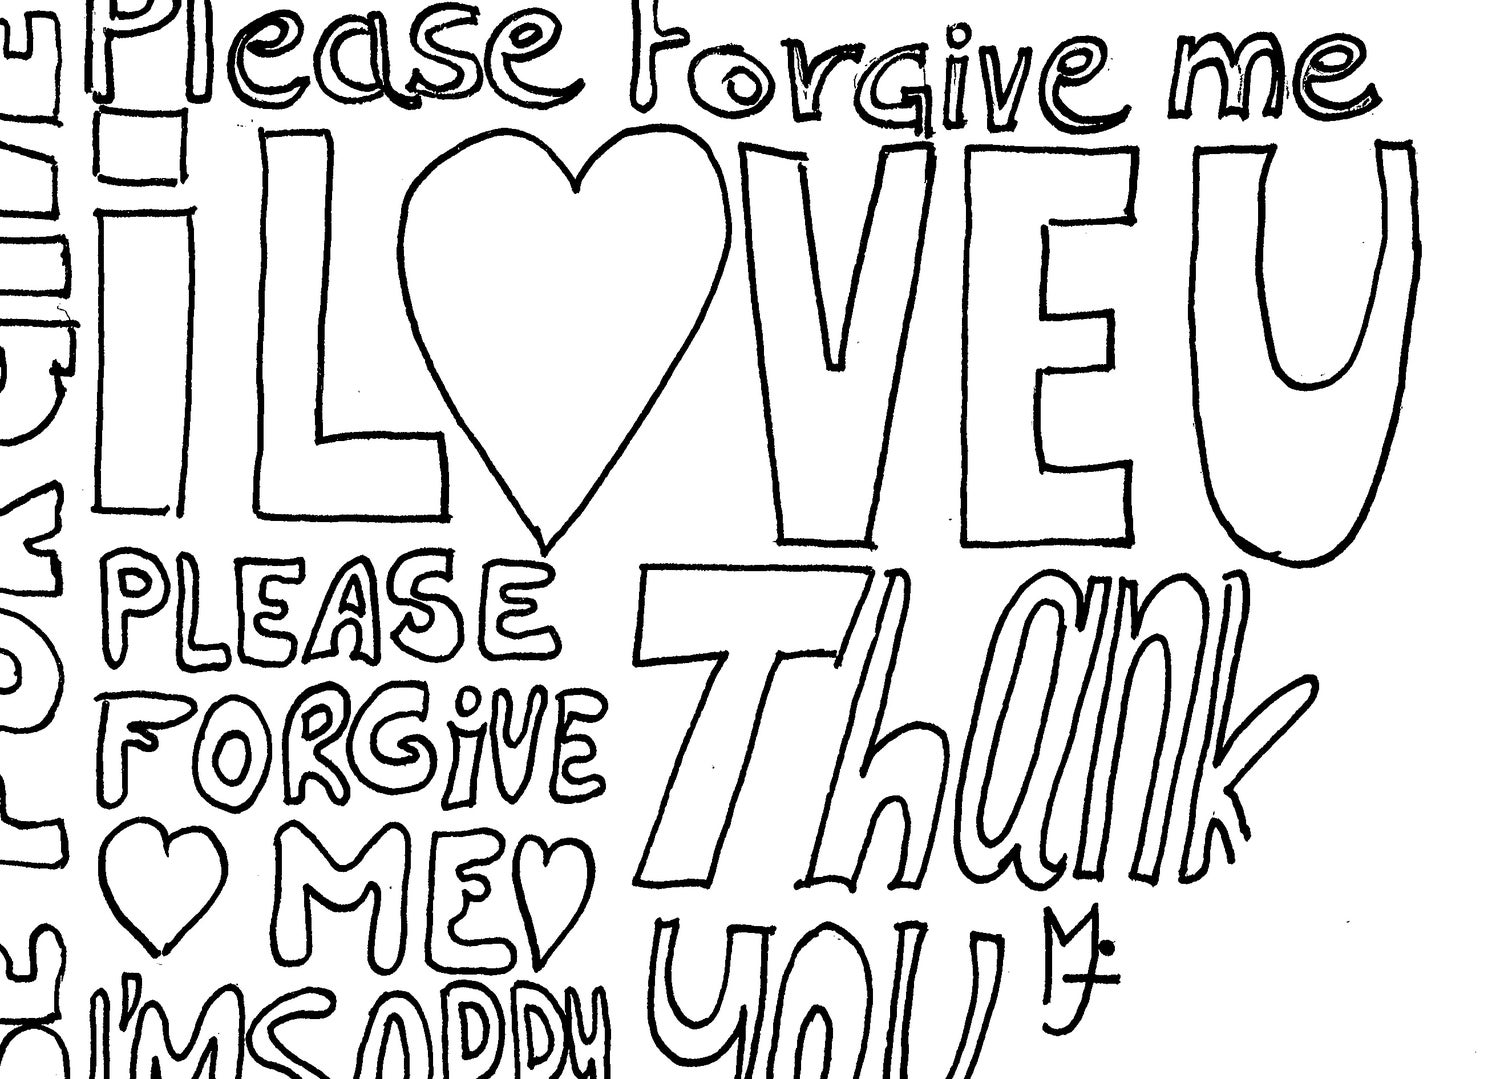 Please forgive me
i L♡VE U
PLEASE
FORGiVE
♡ ME♡
I'M SORRY
Thank
you
M.J
FORGIVE